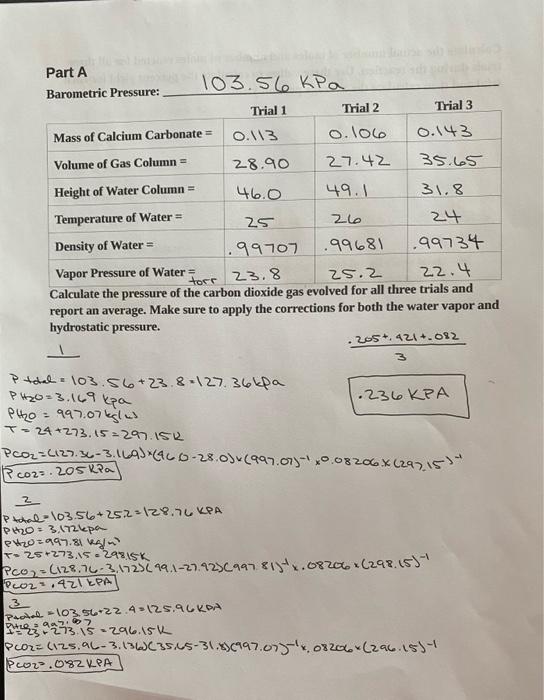 Part A
Barometric Pressure: 103.56 KPa
Trial 1 Trial 2 Trial 3
Mass of Calcium Carbonate = 0.113 0.106 0.143
Volume of Gas Column = 28.90 27.42 35.65
Height of Water Column = 46.0 49.1 31.8
Temperature of Water = 25 26 24
Density of Water = .99707 .99681 .99734
Vapor Pressure of Water = torr 23.8 25.2 22.4
Calculate the pressure of the carbon dioxide gas evolved for all three trials and
report an average. Make sure to apply the corrections for both the water vapor and
hydrostatic pressure.
.205+.421+.082
3
.236 KPA
1
P total = 103.56+23.8=127.36kpa
PH20=3.169 kpa
PH20 = 997.07 kg/
T = 24+273.15=297.15k
PCO2=(127.36-3.169)×(46.0-28.0)×(997.07)-1 ×0.08206×(297.15)-1
PCO2=.205KPa
2
P total=103.56+25.2=128.76 KPA
PH20= 3.172kpa
PH20=997.81 kg/
T=25+273.15=298.15k
PCO2=(128.76-3.172)(49.1-27.92)(997.81)-1×.08206×(298.15)-1
PCO2=.421 KPA
3
Ptotal=103.56+22.4=125.96KPA
=23+273.15=296.15K
PCO2=(125.96-3.136)(35.65-31.8)(997.07)-1×.08206×(296.15)-1
PCO2=.082KPA